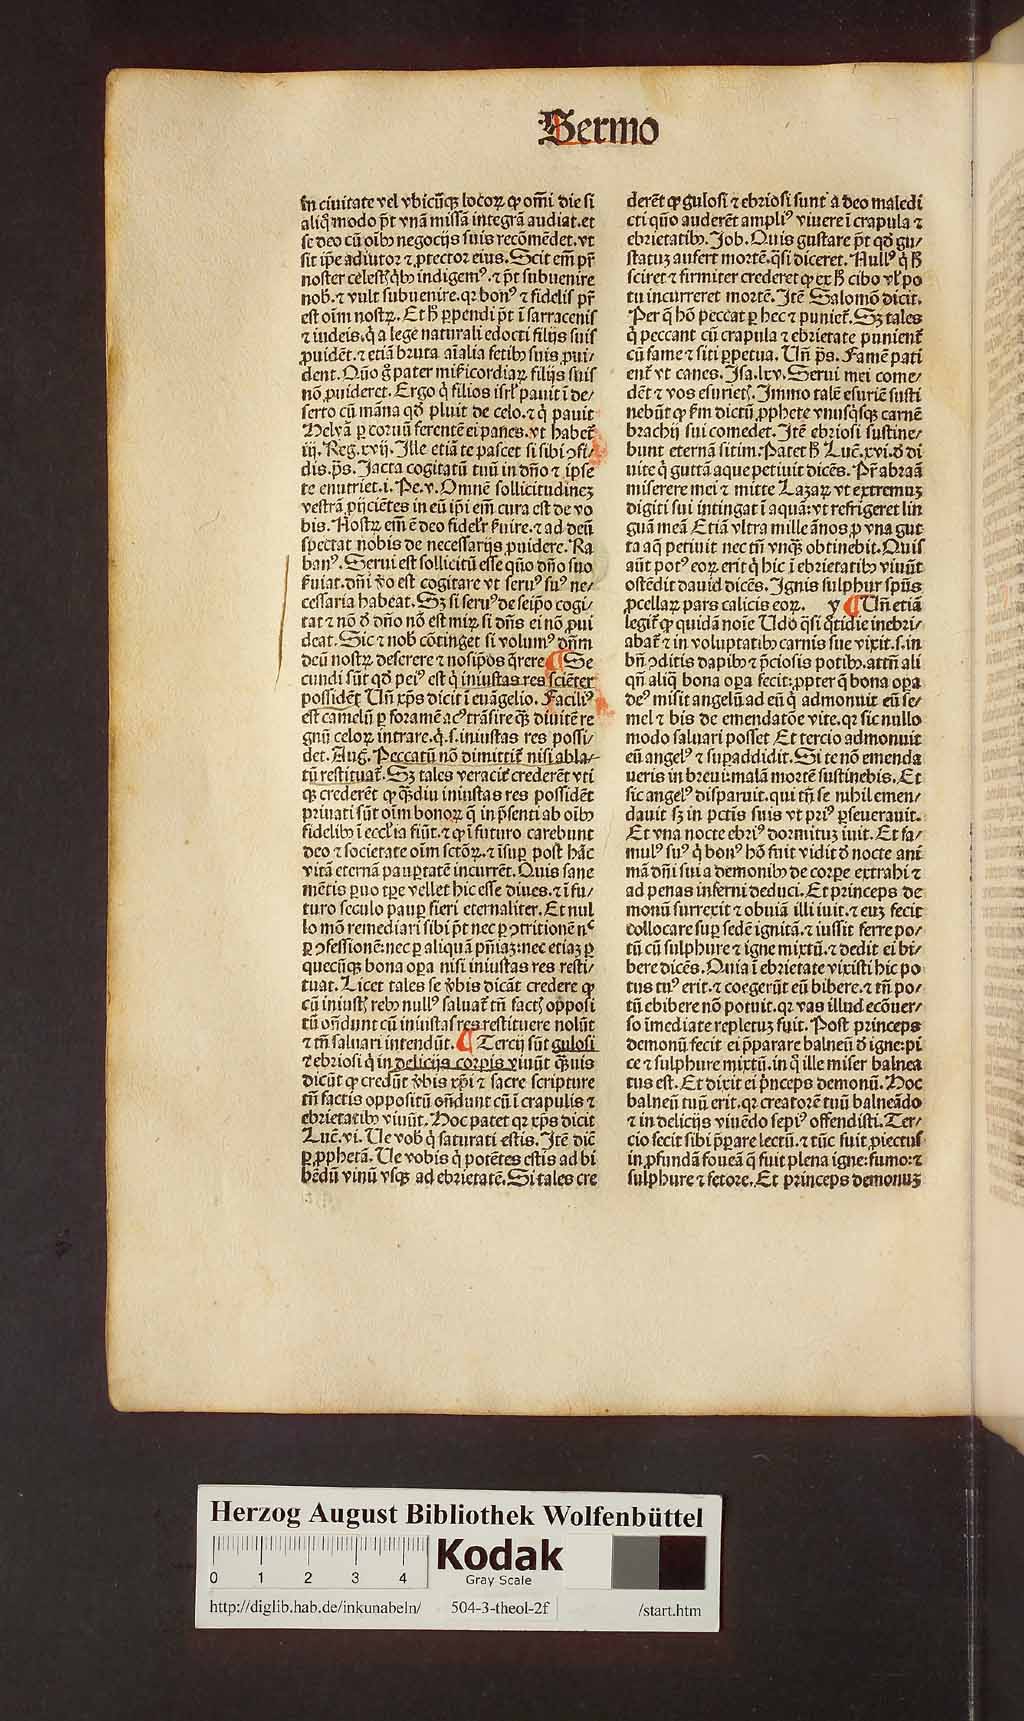 Sermo
in ciuitate vel vbicūqꝫ locoꝝ ꝙ om̄i die si
aliq̊modo pōt vnā missā integrā audiat.et
se deo cū oībꝰ negocijs suis recōmēdet.vt
sit ip̄e adiutor ⁊ ꝓtector eius. Scit em̄ pr̄
noster celestꝭ q̇bꝰ indigemꝰ.⁊ pōt subuenire
nob̄.⁊ vult subuenire.qꝛ bonꝰ ⁊ fidelis pr̄
est oīm nostꝝ. Et hͦ ꝑpendi pōt ī sarracenis
⁊ iudeis.q̇ a lege naturali edocti filijs suis
ꝓuidēt.⁊ etiā bruta aīalia fetibꝰ suis ꝓui/
dent. Quō gͦ pater mīcordiaꝝ filijs suis
nō ꝓuideret. Ergo q̇ filios isrl̄ pauit ī de/
serto cū māna qd̄ pluit de celo.⁊ q̇ pauit
Helyā ꝑ coruū ferentē ei panes.vt habet̄
iij. Reg.xvij. Ille etiā te pascet si sibi ↄfi/
dis.p̄s. Iacta cogitatū tuū in dn̄o ⁊ ipse
te enutriet.i. Pe.v. Omnē sollicitudinez
vestrā ꝓijciētes in eū ip̄i em̄ cura est de vo
bis. Nostꝝ em̄ ē deo fidelr̄ ẜuire.⁊ ad deū
spectat nobis de necessarijs ꝓuidere. Ra
banꝰ. Serui est sollicitū esse quō dn̄o suo
ẜuiat.dn̄i v̄o est cogitare vt seruꝰ suꝰ ne/
cessaria habeat. Sꝫ si seruꝰ de seip̄o cogi/
tat ⁊ nō d̄ dn̄o nō est miꝝ si dn̄s ei nō ꝓui
deat. Sic ⁊ nob̄ cōtinget si volumꝰ dn̄m
deū nostꝝ deserere ⁊ nosip̄os q̄rere. ¶ Se
cundi sūt qd̄ peiꝰ est q̇ iniustas res sciēter
possidēt Un̄ xp̄s dicit ī euāgelio. Faciliꝰ
est camelū ꝑ foramē acꝰ trāsire qꝫ diuitē re
gnū celoꝝ intrare.q̇.s.iniustas res possi/
det. Aug. Peccatū nō dimittit̄ nisi abla/
tū restituat̄. Sꝫ tales veracit̄ crederēt vti
qꝫ crederēt ꝙ qꝫdiu iniustas res possidēt
priuati sūt oīm bonoꝝ q̄ in p̄senti ab oībꝰ
fidelibꝰ ī eccl̄ia fiūt.⁊ ꝙ ī futuro carebunt
deo ⁊ societate oīm sctōꝝ.⁊ īsuꝑ post hāc
vitā eternā pauꝑtatē incurrēt. Quis sane
mētis ꝑuo tꝑe vellet hic esse diues.⁊ ī fu/
turo seculo pauꝑ fieri eternaliter. Et nul
lo mō remediari sibi pōt nec ꝑ ↄtritionē nͨ
ꝑ ↄfessionē:nec ꝑ aliquā pn̄iaꝫ:nec etiaꝫ ꝑ
quecūqꝫ bona oꝑa nisi iniustas res resti/
tuat. Licet tales se v̄bis dicāt credere ꝙ
cū iniustꝭ rebꝰ nullꝰ saluat̄ tn̄ factꝭ opposi
tū on̄dunt cū iniustas res restituere nolūt
⁊ tn̄ saluari intendūt. ¶ Tercij sūt gulosi
⁊ ebriosi q̇ in delicijs corꝑis viuūt qꝫuis
dicūt ꝙ credūt v̄bis xp̄i ⁊ sacre scripture
tn̄ factis oppositū on̄dunt cū ī crapulis ⁊
ebrietatibꝰ viuūt. Hoc patet qꝛ xp̄s dicit
Luc̄.vi. Ue vob̄ q̇ saturati estis. Itē dic̄
ꝑ ꝓphetā. Ue vobis q̇ potētes estis ad bi
bēdū vinū vsqꝫ ad ebrietatē. Si tales cre
derēt ꝙ gulosi ⁊ ebriosi sunt a deo maledi
cti quō auderēt ampliꝰ viuere ī crapula ⁊
ebrietatibꝰ. Job. Quis gustare pōt qd̄ gu/
statuꝫ aufert mortē.q̄si diceret. Nullꝰ q̇ hͦ
sciret ⁊ firmiter crederet ꝙ ex hͦ cibo vl̓ po
tu incurreret mortē. Itē Salomō dicit.
Per q̄ hō peccat ꝑ hec ⁊ puniet̄. Sꝫ tales
q̇ peccant cū crapula ⁊ ebrietate punient̄
cū fame ⁊ siti ꝑpetua. Un̄ p̄s. Famē pati
ent̄ vt canes. Isa.lxv. Serui mei come/
dēt ⁊ vos esurietꝭ. Immo talē esuriē susti
nebūt ꝙ ẜm dictū ꝓphete vnusq̇sqꝫ carnē
brachij sui comedet. Itē ebriosi sustine/
bunt eternā sitim. Patet hͦ Luc̄.xvi.d̄ di
uite q̇ guttā aque petiuit dicēs. Pr̄ abraā
miserere mei ⁊ mitte Lazaꝝ vt extremuꝫ
digiti sui intingat ī aquā:vt refrigeret lin
guā meā Etiā vltra mille ānos ꝓ vna gut
ta aq̄ petiuit nec tn̄ vnqꝫ obtinebit. Quis
aūt potꝰ eoꝝ erit q̇ hic ī ebrietatibꝰ viuūt
ostēdit dauid dicēs. Ignis sulphur spūs
ꝓcellaꝝ pars calicis eoꝝ. y ¶ Un̄ etiā
legit̄ ꝙ quidā noīe Udo q̄si q̊tidie inebri/
abat̄ ⁊ in voluptatibꝰ carnis sue vixit.s.in
bn̄ ↄditis dapibꝰ ⁊ p̄ciosis potibꝰ.attn̄ ali
qn̄ aliq̄ bona oꝑa fecit:ꝓpter q̄ bona oꝑa
deꝰ misit angelū ad eū q̇ admonuit eū se/
mel ⁊ bis de emendatōe vite.qꝫ sic nullo
modo saluari posset Et tercio admonuit
eū angelꝰ ⁊ supaddidit. Si te nō emenda
ueris in breui:malā mortē sustinebis. Et
sic angelꝰ disparuit.qui tn̄ se nihil emen/
dauit sꝫ in pctīs suis vt priꝰ ꝑseuerauit.
Et vna nocte ebriꝰ dormituꝫ iuit. Et fa/
mulꝰ suꝰ q̇ bonꝰ hō fuit vidit d̄ nocte ani
mā dn̄i sui a demonibꝰ de corꝑe extrahi ⁊
ad penas inferni deduci. Et princeps de
monū surrexit ⁊ obuiā illi iuit.⁊ euꝫ fecit
collocare suꝑ sedē ignitā.⁊ iussit ferre po/
tū cū sulphure ⁊ igne mixtū.⁊ dedit ei bi/
bere dicēs. Quia ī ebrietate vixisti hic po
tus tuꝰ erit.⁊ coegerūt eū bibere.⁊ tn̄ po/
tū ebibere nō potuit.qꝛ vas illud ecōuer/
so īmediate repletuꝫ fuit. Post princeps
demonū fecit ei p̄parare balneū d̄ igne:pi
ce ⁊ sulphure mixtū.in q̊ ille miser balnea
tus est. Et dixit ei p̄nceps demonū. Hoc
balneū tuū erit.qꝛ creatorē tuū balneādo
⁊ in delicijs viuēdo sepiꝰ offendisti. Ter/
cio fecit sibi p̄parare lectū.⁊ tūc fuit ꝓiectus
in ꝓfundā foueā q̄ fuit plena igne:fumo:⁊
sulphure ⁊ fetore. Et princeps demonuꝫ
Herzog August Bibliothek Wolfenbüttel
0 1 2 3 4
Kodak
Gray Scale
http://diglib.hab.de/inkunabeln/ 504-3-theol-2f /start.htm